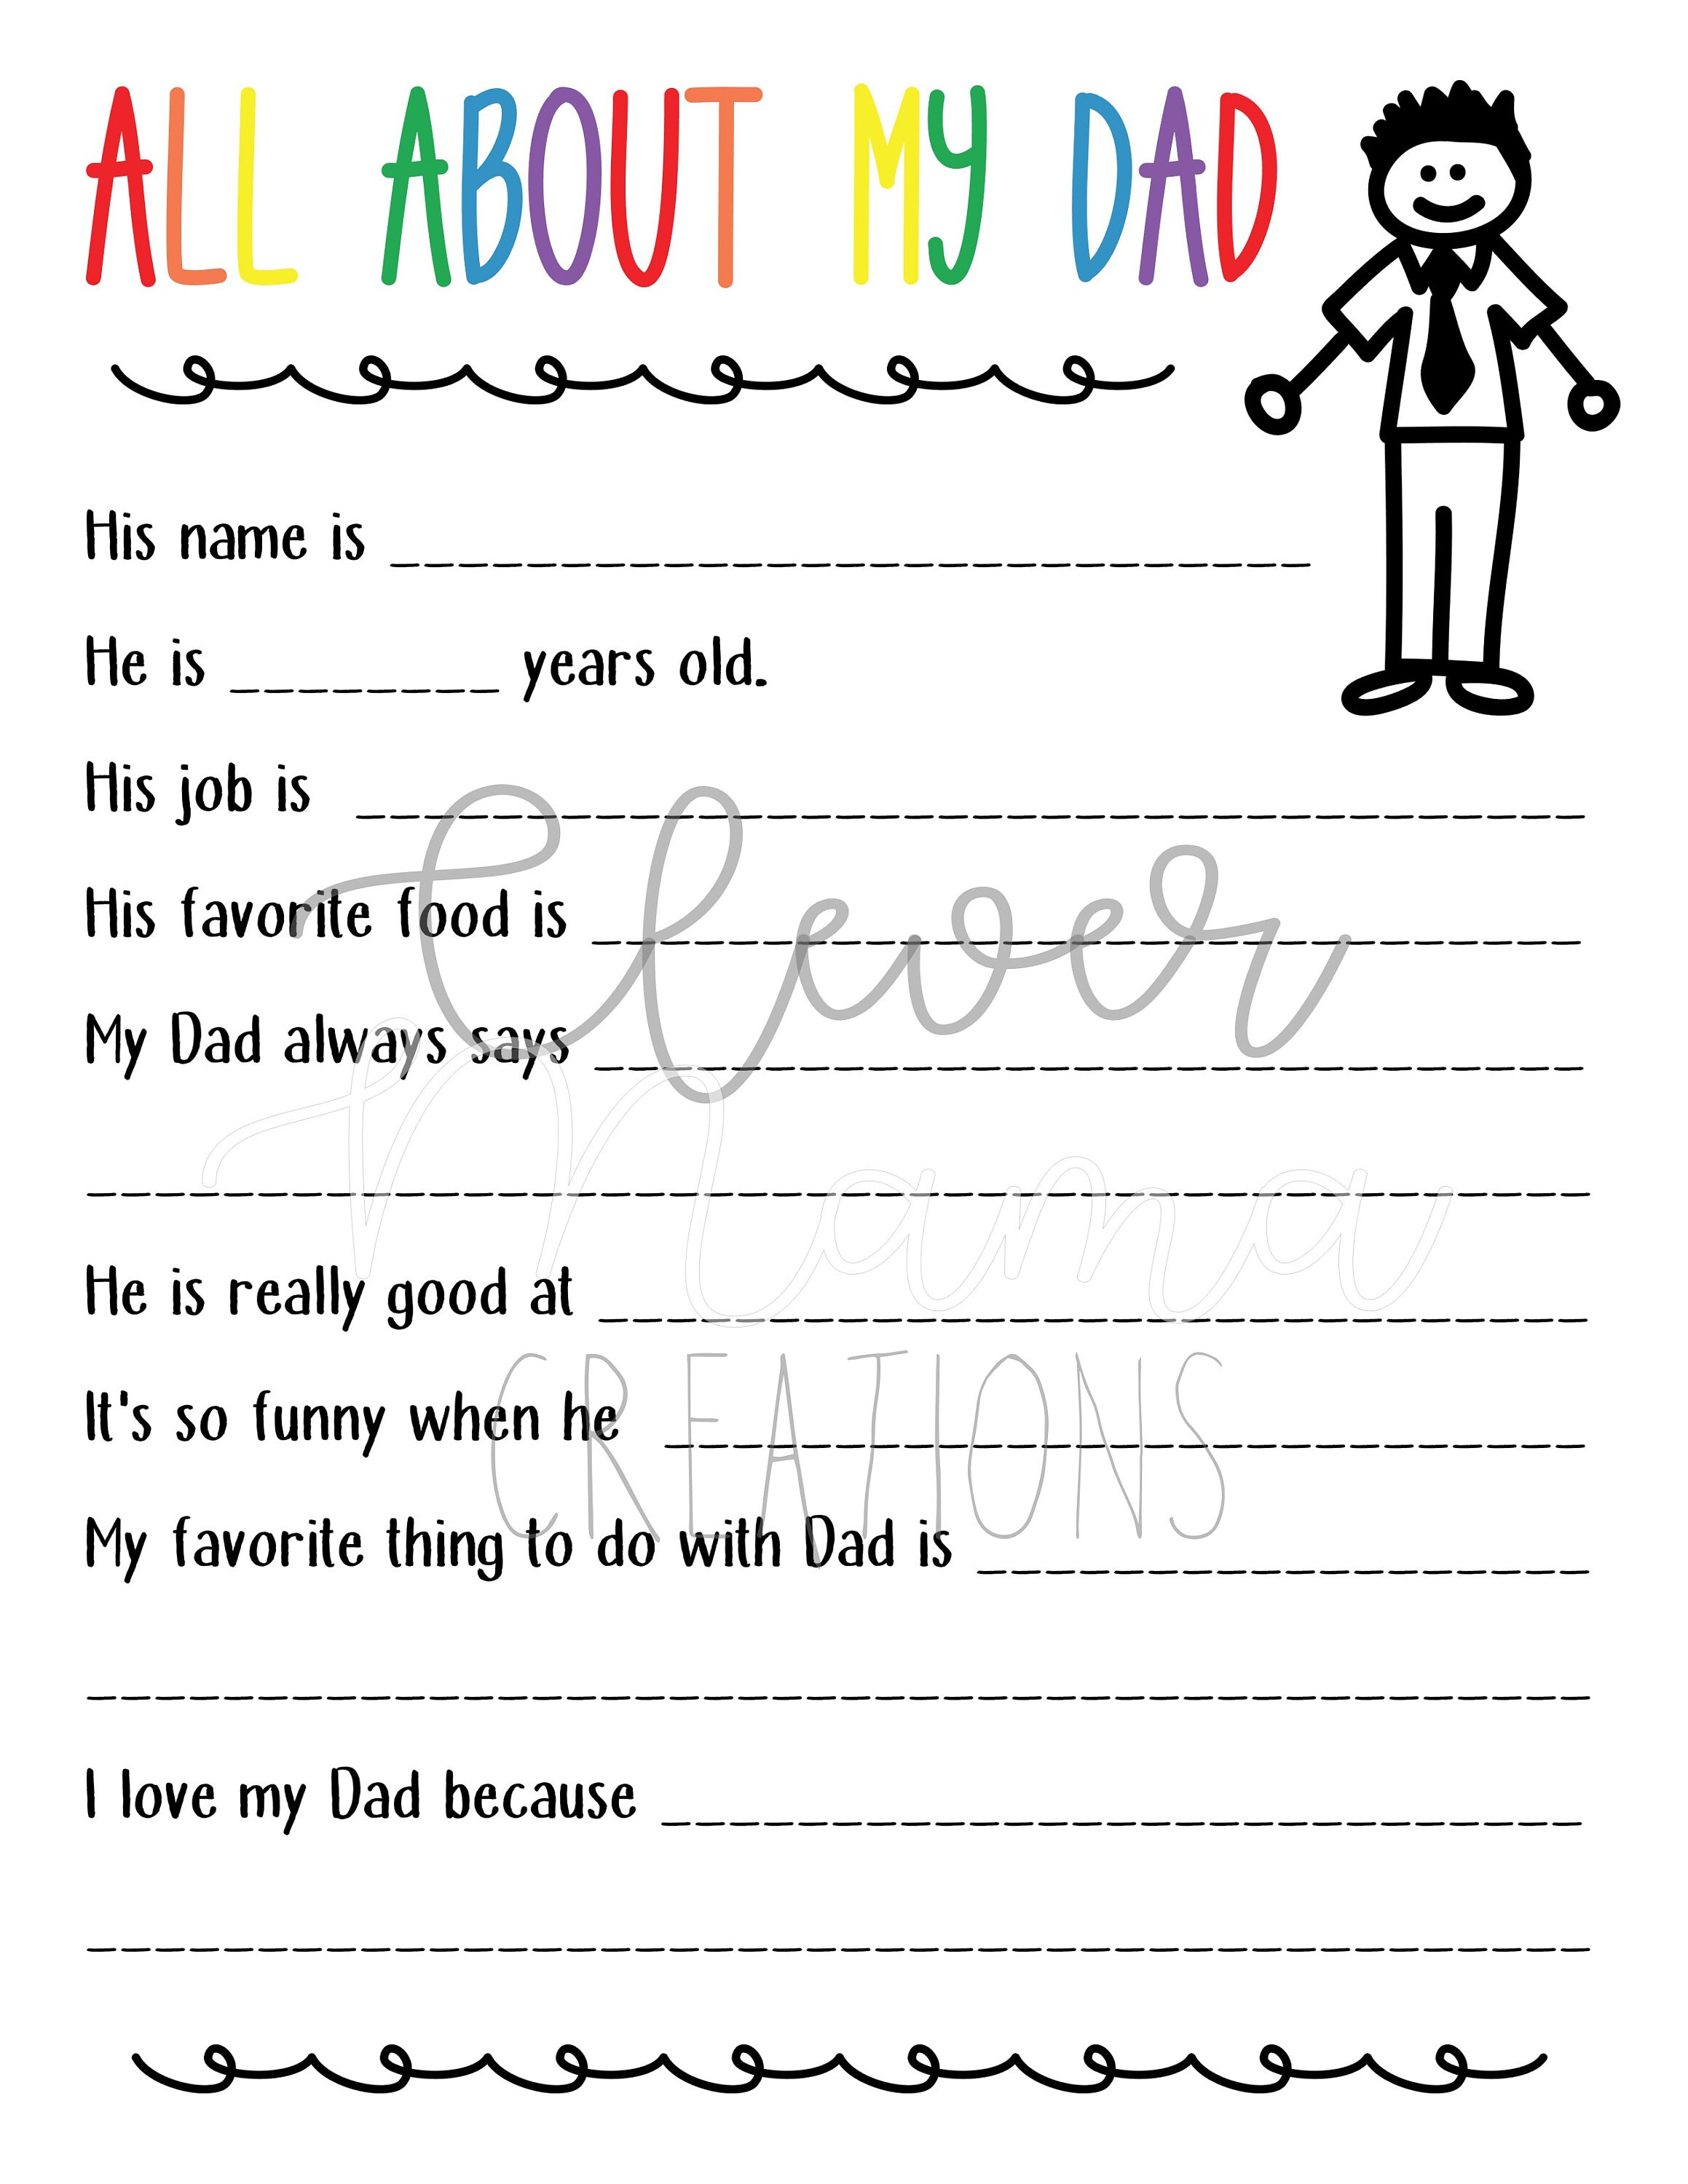 ALL ABOUT MY DAD
His name is ___________________________
He is ________ years old.
His job is ____________________________________
His favorite food is _____________________________
My Dad always says _____________________________
____________________________________________
He is really good at _____________________________
It's so funny when he ___________________________
My favorite thing to do with Dad is __________________
____________________________________________
I love my Dad because ___________________________
____________________________________________
Clever
Mama
CREATIONS